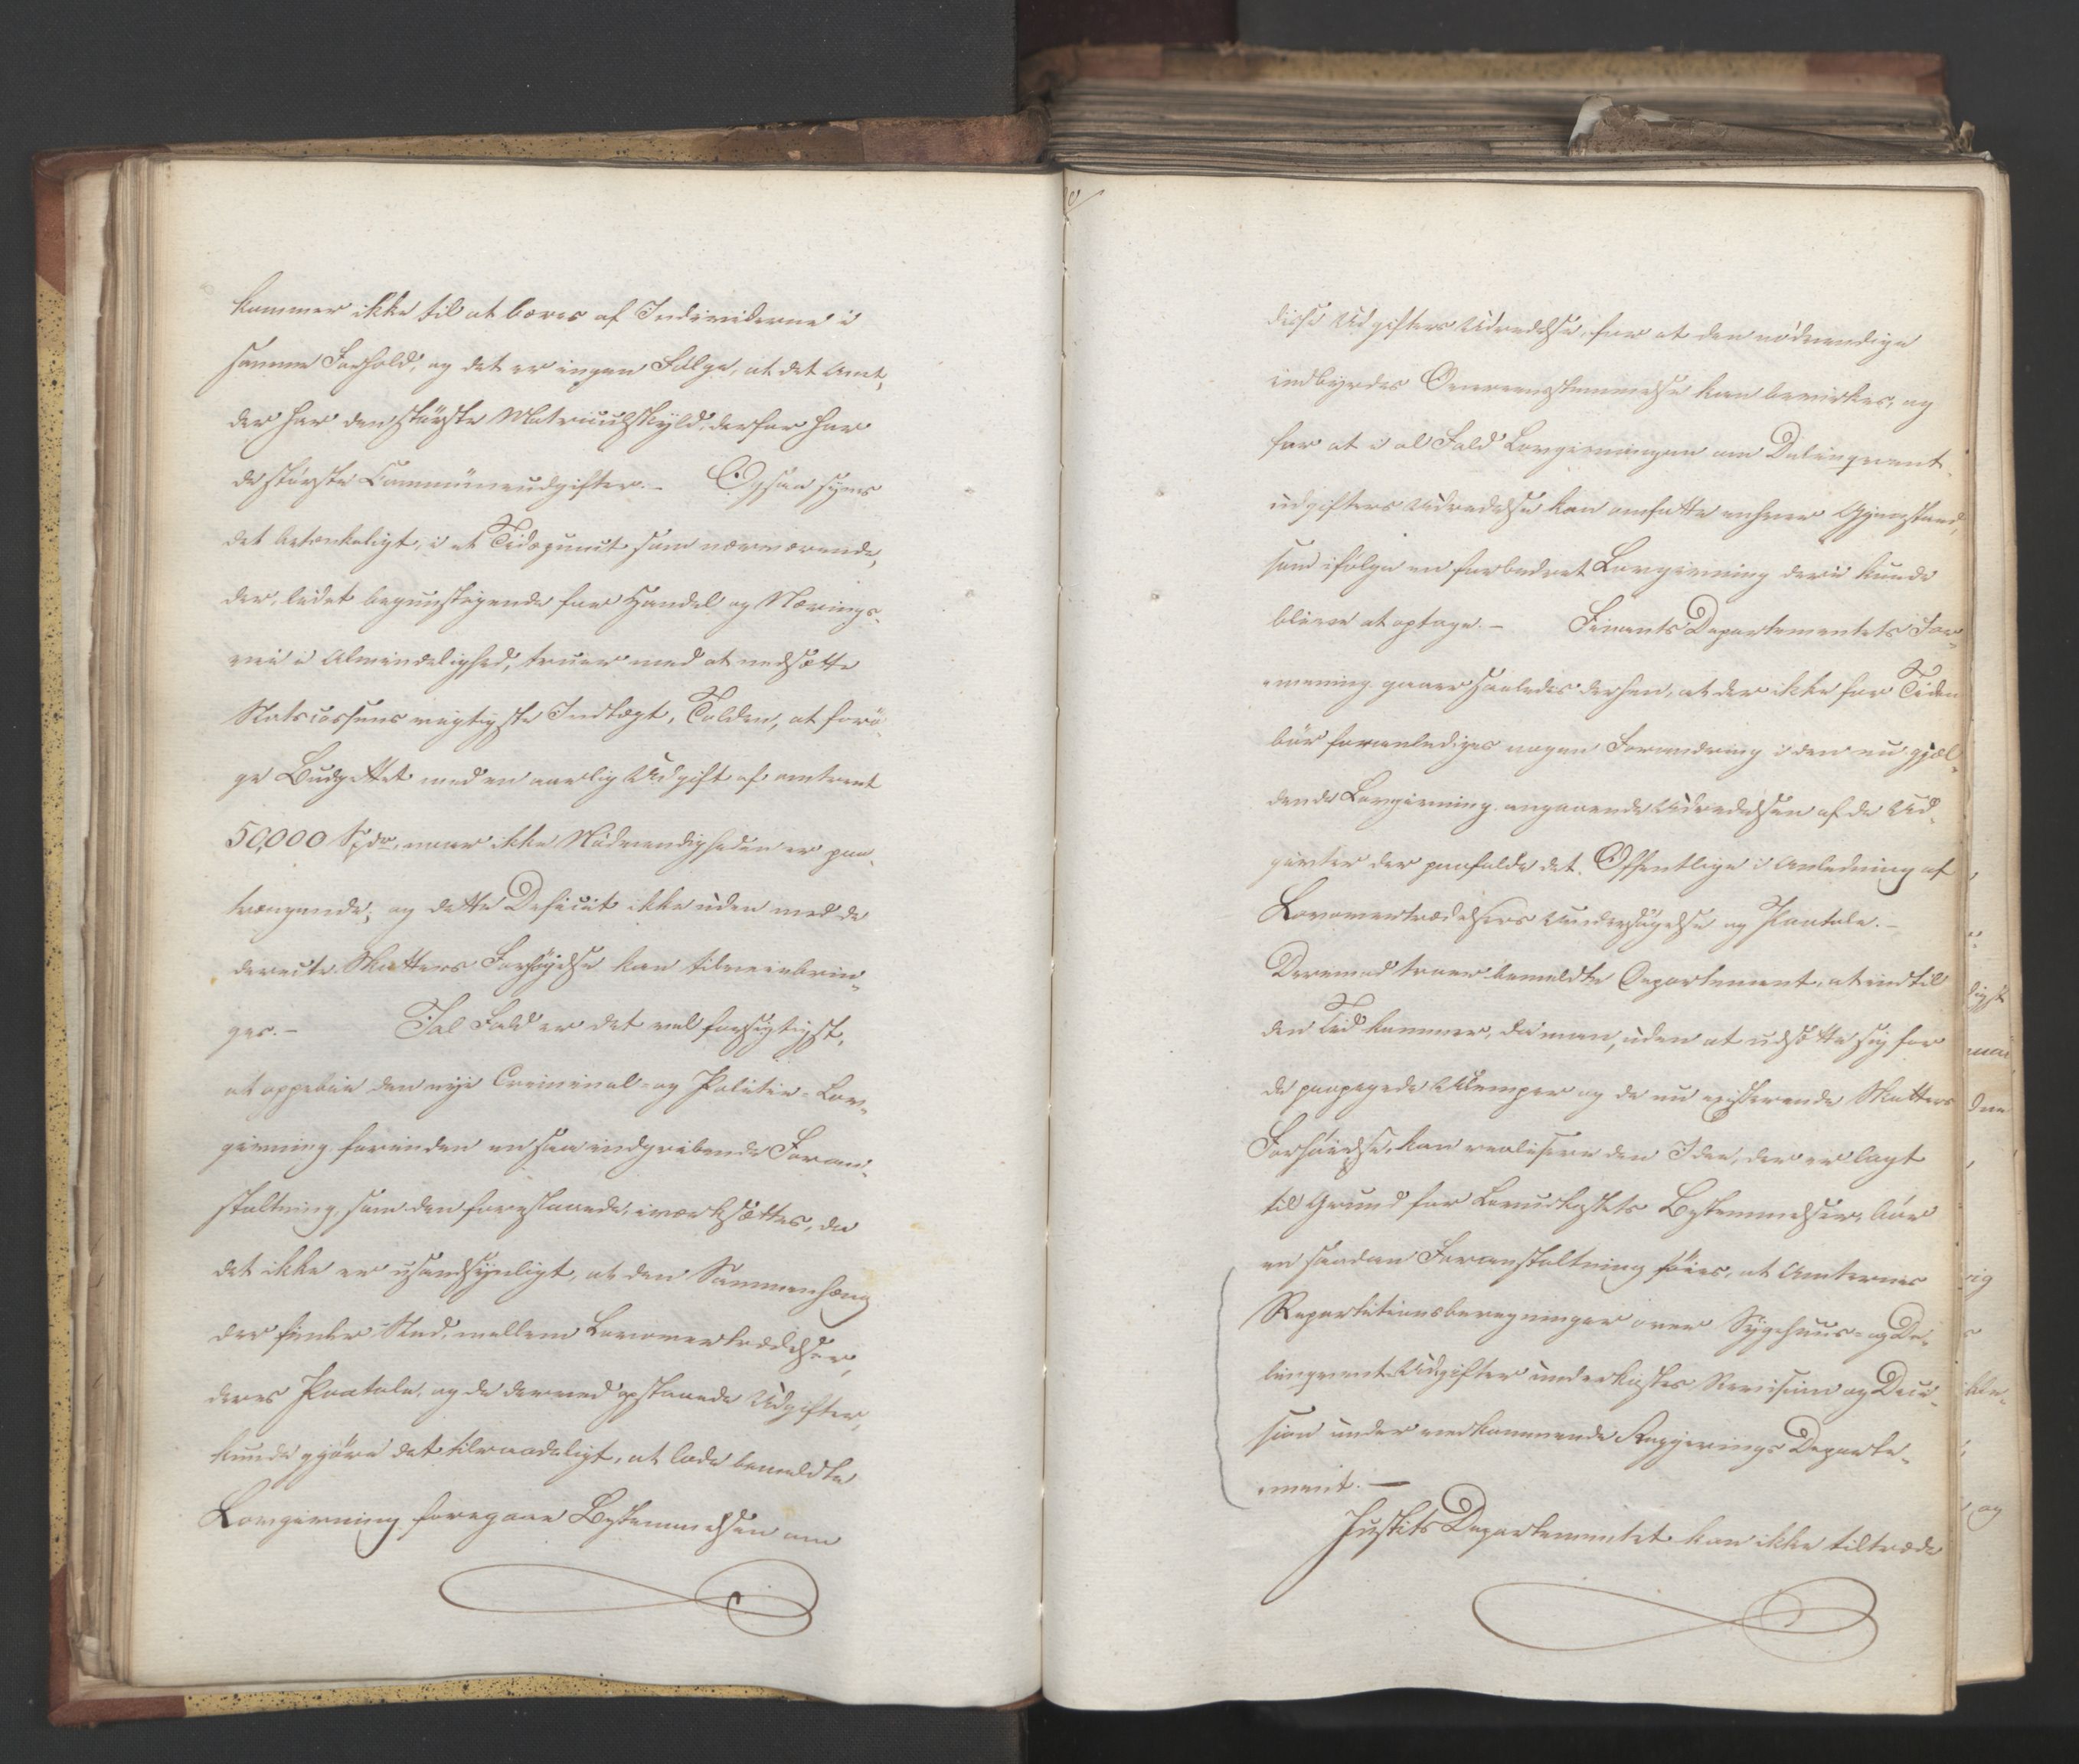 kommer ikke til at bæres af Individerne i
samme Forhold, og det er ingen Følge, at det Amt,
der har den største Matriculskyld, derfor har
de største Communeudgifter. – Ogsaa synes
det betænkeligt, i et Tidspunct som nærværende,
der, lidet begunstigende for Handel og Nærings-
vei i Almindelighed, truer med at nedsætte
Statscassens vigtigste Indtægt, Tolden, at forö-
ge Budgettet med en aarlig Udgift af omtrent
50,000 Spdr, naar ikke Nödvendigheden er paa-
trængende; og dette Deficit ikke uden med de
directe Skatters Forhöjelse kan tilveiebrin-
ges. – I al Fald er det vel forsigtigst,
at oppebie den nye Criminal- og Politie-Lov-
givning forinden en saa indgribende Foran-
staltning, som den foreslaaede, iværksættes, da
det ikke er usandsynligt, at den Sammenhæng
der finder Sted, mellem Lovovertrædelser,
deres Paatale, og de derved opstaaede Udgifter,
kunde gjøre det tilraadeligt, at lade bemeldte
Lovgivning foregaae Bestemmelsen om
disse Udgifters Udredelse, for at den nödvendige
indbyrdes Overeensstemmelse kan bevirkes, og
for at i al Fald Lovgivningen om Delinqvent-
udgifters Udredelse kan omfatte enhver Gjenstand,
som ifølge en forbedret Lovgivning deri kunde
blive at optage. – Finants Departementets For-
mening gaaer saaledes derhen, at der ikke for Tiden
bör foranlediges nogen Forandring i den nu gjæl-
dende Lovgivning angaaende Udredelsen af de Ud-
givter der paafalde det Offentlige i Anledning af
Lovovertrædelsers Undersögelse og Paatale. –
Derimod troer bemeldte Departement, at indtil
den Tid kommer, da man, uden at udsætte sig for
de paapegede Ulemper og de nu existerende Skatters
Forhöielse, kan realisere den Idee, der er lagt
til Grund for Lovudkastets Bestemmelser, bör
en saadan Foranstaltning föies, at Amternes
Repartitionsberegninger over Sygehuus- og De-
linqvent-Udgifter underkastes Revision og Deci-
sion under vedkommende Regjerings Departe-
ment. –
Justits Departementet kan ikke tiltræde